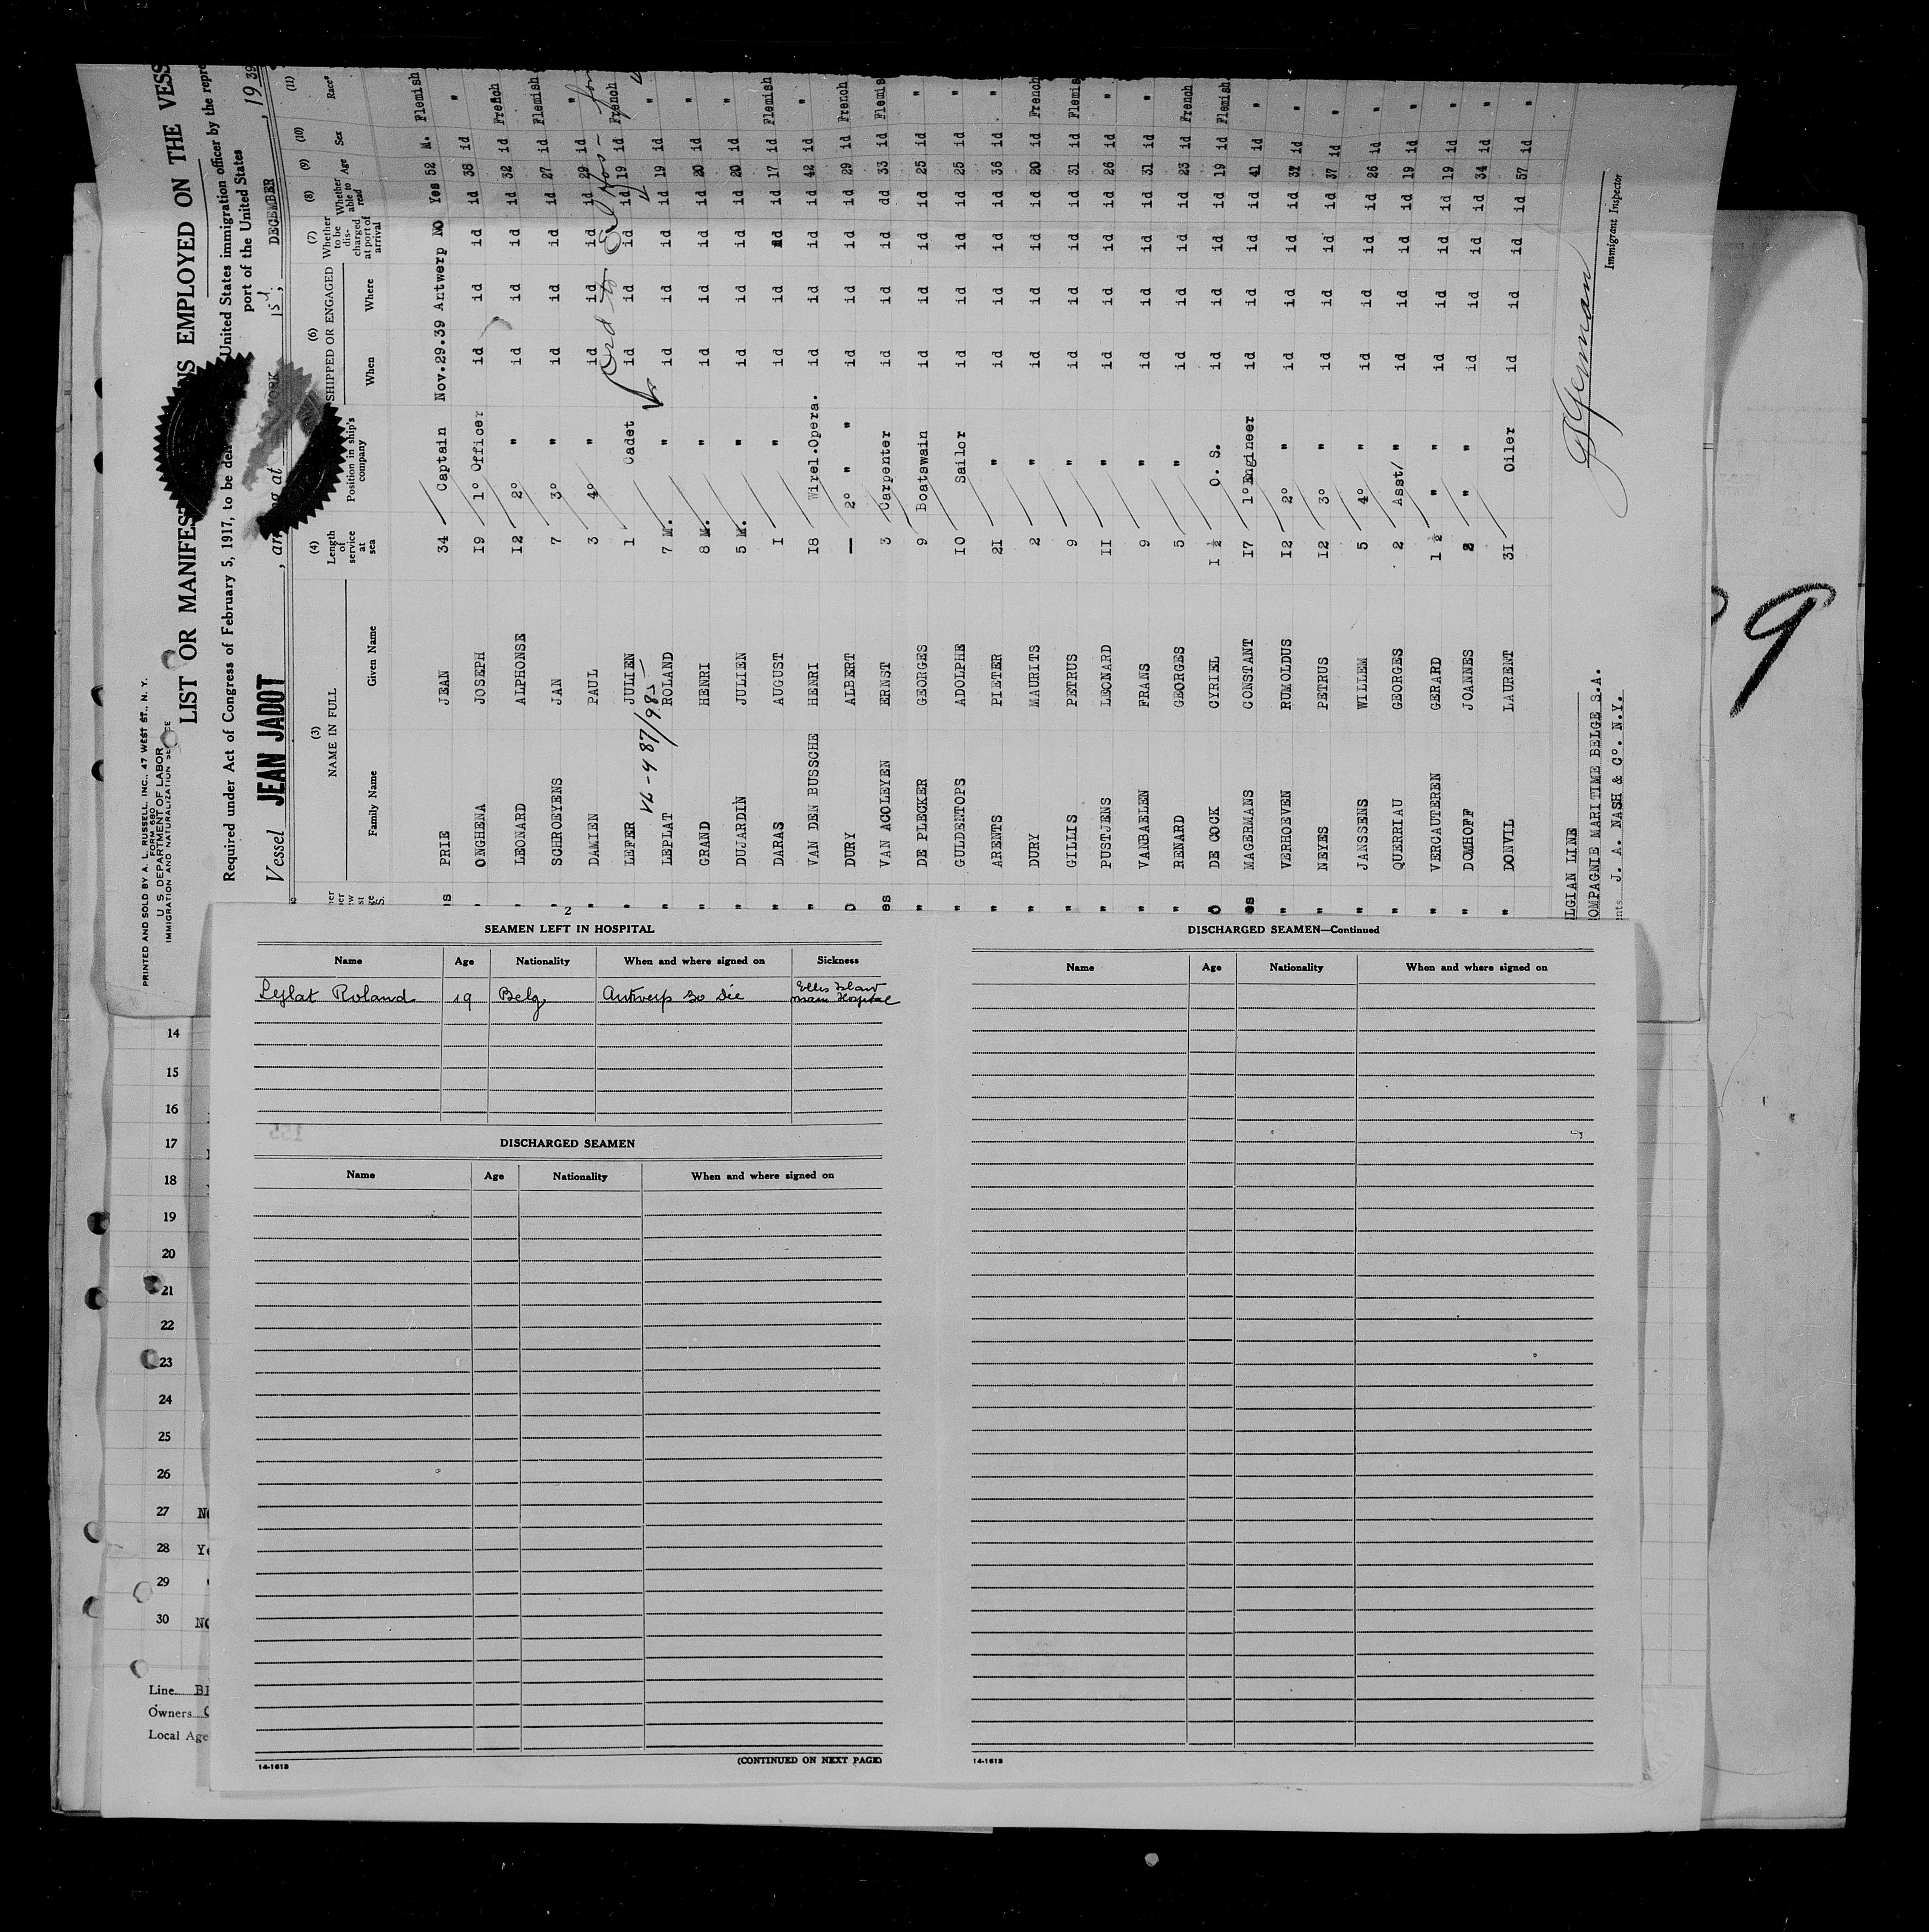 PRINTED AND SOLD BY A. L. RUSSELL, INC., 47 WEST ST., N. Y.
FORM 680
U. S. DEPARTMENT OF LABOR
IMMIGRATION AND NATURALIZATION SERVICE
LIST OR MANIFES NS EMPLOYED ON THE VESS
Required under Act of Congress of February 5, 1917, to be deli United States immigration officer by the repre
port of the United States
Vessel JEAN JADOT , ar g at YORK 15 , DECEMBER , 19 39
(3) (4) (6) (7) (8) (9) (10) (11)
NAME IN FULL Length of service at sea Position in ship's company SHIPPED OR ENGAGED Whether to be discharged at port of arrival Whether able to read Age Sex Race*
Family Name Given Name When Where
es PRIE JEAN 34 Captain Nov.29.39 Antwerp NO Yes 52 M. Flemish
" ONGHENA JOSEPH 19 1° Officer id id id id 38 id "
" LEONARD ALPHONSE 12 2° " id id id id 32 id French
" SCHROEYENS JAN 7 3° " id id id id 27 id Flemish
" DAMIEN PAUL 3 4° " id id id id 29 id "
" LEFER JULIEN 1 Cadet id id id id 19 id French
" LEPLAT ROLAND 7 M. " id id id id 19 id "
" GRAND HENRI 8 M. " id id id id 20 id "
" DUJARDIN JULIEN 5 M. " id id id id 20 id "
" DARAS AUGUST 1 " id id id id 17 id Flemish
" VAN DEN BUSSCHE HENRI 18 Wirel.Opera. id id id id 42 id "
O DURY ALBERT — 2° " " id id id id 29 id French
es VAN ACOLEYEN ERNST 3 Carpenter id id id dd 33 id Flemis
" DE PLECKER GEORGES 9 Boatswain id id id id 25 id "
" GULDENTOPS ADOLPHE 10 Sailor id id id id 25 id "
" ARENTS PIETER 21 " id id id id 36 id "
" DURY MAURITS 2 " id id id id 20 id French
" GILLIS PETRUS 9 " id id id id 31 id Flemis
" PUSTJENS LEONARD 11 " id id id id 26 id "
" VANBAELEN FRANS 9 " id id id id 31 id "
" RENARD GEORGES 5 " id id id id 23 id French
O DE COCK CYRIEL 1 ½ O. S. id id id id 19 id Flemish
es MAGERMANS CONSTANT 17 1° Engineer id id id id 41 id "
" VERHOEVEN RUMOLDUS 12 2° " id id id id 37 id "
" NEYES PETRUS 12 3° " id id id id 37 id "
" JANSSENS WILLEM 5 4° " id id id id 26 id "
" QUERRIAU GEORGES 2 Asst/ " id id id id 19 id "
" VERCAUTEREN GERARD 1 ½ " " id id id id 19 id "
" DOMHOFF JOANNES 2 " " id id id id 34 id "
" DONVIL LAURENT 31 Oiler id id id id 57 id "
Ord to
LGIAN LINE
OMPAGNIE MARITIME BELGE S.A.
ents J. A. NASH & C°. N.Y.
Immigrant Inspector
9
2
SEAMEN LEFT IN HOSPITAL
Name Age Nationality When and where signed on Sickness
Leplat Roland 19 Belg Antwerp 30 Ellis Island Marin Hospital
DISCHARGED SEAMEN
Name Age Nationality When and where signed on
(CONTINUED ON NEXT PAGE)
14-1613
DISCHARGED SEAMEN—Continued
Name Age Nationality When and where signed on
14-1613
14
15
16
17
18
19
20
21
22
23
24
25
26
27 NO
28 Ye
29 "
30 NO
Line BE
Owners C
Local Age